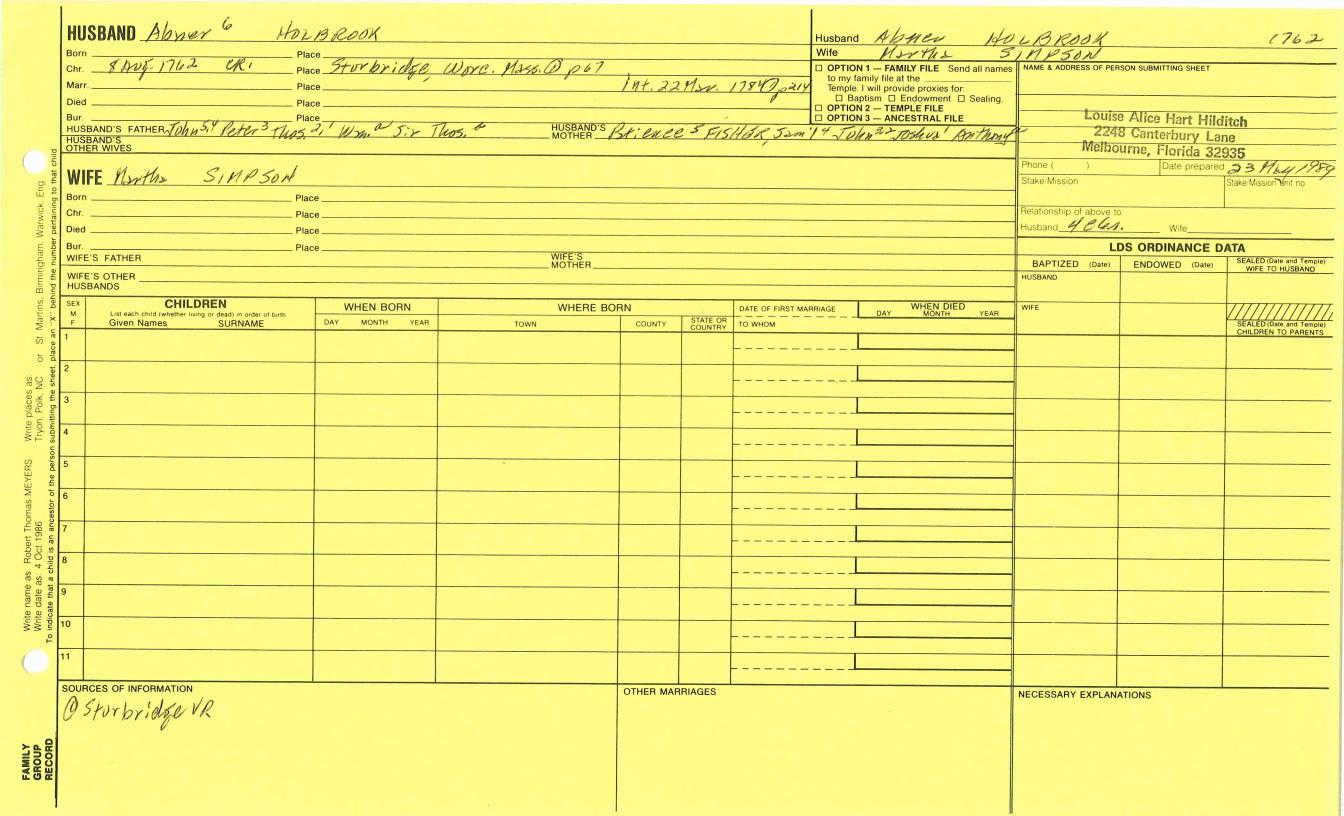 HUSBAND Abner 6 HOLBROOK
Born Place
Chr. 8 Aug 1762 CR. Place Sturbridge, Worc. Mass. ① p 67
Marr. Place Int. 22 Mar. 1784 p214
Died Place
Bur. Place
HUSBAND'S FATHER John 5,4 Peter 3 Thos. 2,1 Wm. a Sir Thos. b HUSBAND'S MOTHER Patience 5 FISHER, Sam'l 4 John 3,2 Joshua 1 Anthony a
HUSBAND'S OTHER WIVES
Husband Abner HOLBROOK 1762
Wife Martha SIMPSON
☐ OPTION 1 — FAMILY FILE Send all names
to my family file at the
Temple. I will provide proxies for:
☐ Baptism ☐ Endowment ☐ Sealing.
☐ OPTION 2 — TEMPLE FILE
☐ OPTION 3 — ANCESTRAL FILE
NAME & ADDRESS OF PERSON SUBMITTING SHEET
Louise Alice Hart Hilditch
2248 Canterbury Lane
Melbourne, Florida 32935
Phone ( ) Date prepared 23 May 1989
Stake/Mission Stake/Mission unit no
Relationship of above to
Husband 4 C6r. Wife
WIFE Martha SIMPSON
Born Place
Chr. Place
Died Place
Bur. Place
WIFE'S FATHER WIFE'S MOTHER
WIFE'S OTHER HUSBANDS
LDS ORDINANCE DATA
BAPTIZED (Date) ENDOWED (Date) SEALED (Date and Temple) WIFE TO HUSBAND
HUSBAND
WIFE
SEALED (Date and Temple) CHILDREN TO PARENTS
SEX M F
CHILDREN
List each child (whether living or dead) in order of birth
Given Names SURNAME
WHEN BORN
DAY MONTH YEAR
WHERE BORN
TOWN COUNTY STATE OR COUNTRY
DATE OF FIRST MARRIAGE
TO WHOM
WHEN DIED
DAY MONTH YEAR
1
2
3
4
5
6
7
8
9
10
11
SOURCES OF INFORMATION
① Sturbridge VR
OTHER MARRIAGES
NECESSARY EXPLANATIONS
Write name as Robert Thomas MEYERS Write places as Tryon, Polk, NC or St. Martins, Birmingham, Warwick, Eng.
Write date as 4 Oct 1986
To indicate that a child is an ancestor of the person submitting the sheet, place an "X" behind the number pertaining to that child
FAMILY GROUP RECORD